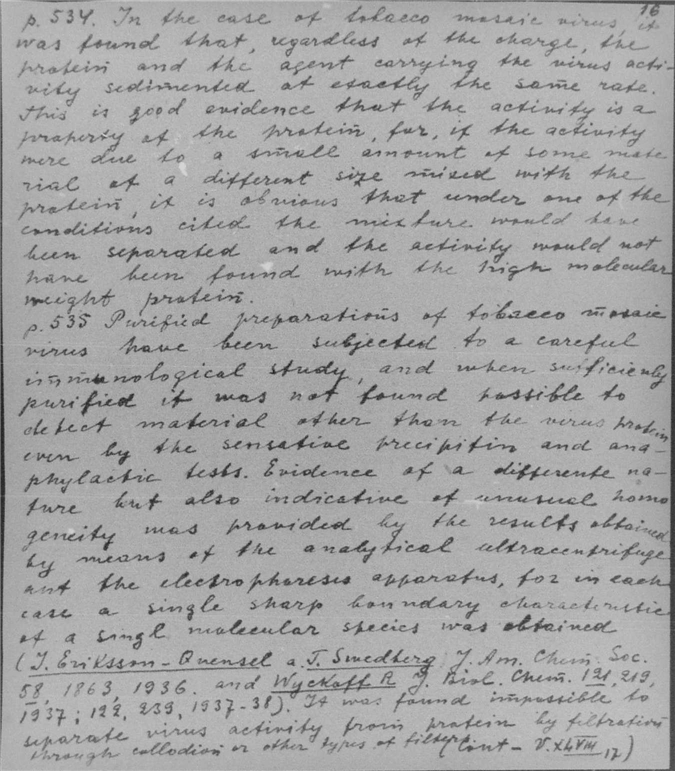 16
p. 534. In the case of tobacco mosaic virus, it
was found that, regardless of the charge, the
protein and the agent carrying the virus acti-
vity sedimented at exactly the same rate.
This is good evidence that the activity is a
property of the protein, for, if the activity
were due to a small amount of some mate
rial of a different size mixed with the
protein, it is obvious that under one of the
conditions cited the mixture would have
been separated and the activity would not
have been found with the high molecular
weight protein.
p. 535 Purified preparations of tobacco mosaic
virus have been subjected to a careful
immunological study, and when sufficienly
purified it was not found possible to
detect material other than the virus protein
even by the sensative precipitin and ana-
phylactic tests. Evidence of a differente na-
ture but also indicative of unusual homo
geneity was provided by the results obtained
by means of the analytical ultracentrifuge
ant the electrophoresis apparatus, for in each
case a single sharp boundary characteristic
of a singl molecular species was obtained
(I. Eriksson-Quensel a. T. Swedberg, J. Am. Chem. Soc.
58, 1863, 1936. and Wyckoff R J. Biol. Chem. 121, 219,
1937; 122, 239, 1937-38). It was found impossible to
separate virus activity from protein by filtration
through collodion or other types of filters. (Cont - V. XLVIII, 17)